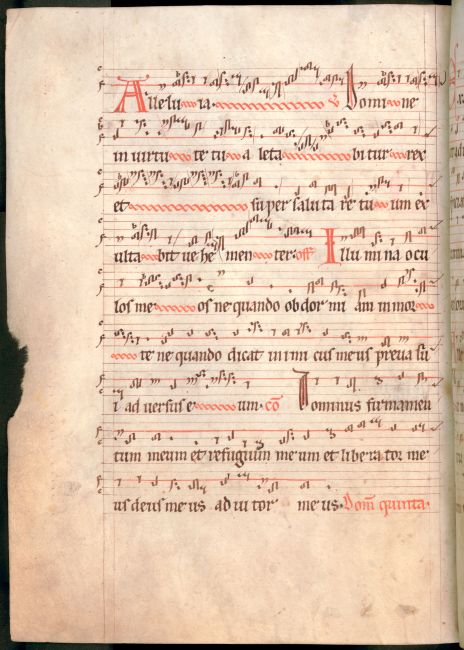 Allelu ia. V Domi ne
in virtu te tu a leta bitur rex
et super saluta re tu um ex
ulta bit vehe men ter. off Illu mi na ocu
los me os ne quando obdor mi am in mor
te ne quando dicat inimi cus meus preva lu
i adversus e um. co Dominus firmamen
tum meum et refugium meum et libera tor me
us deus meus adiu tor meus. Dom quinta.